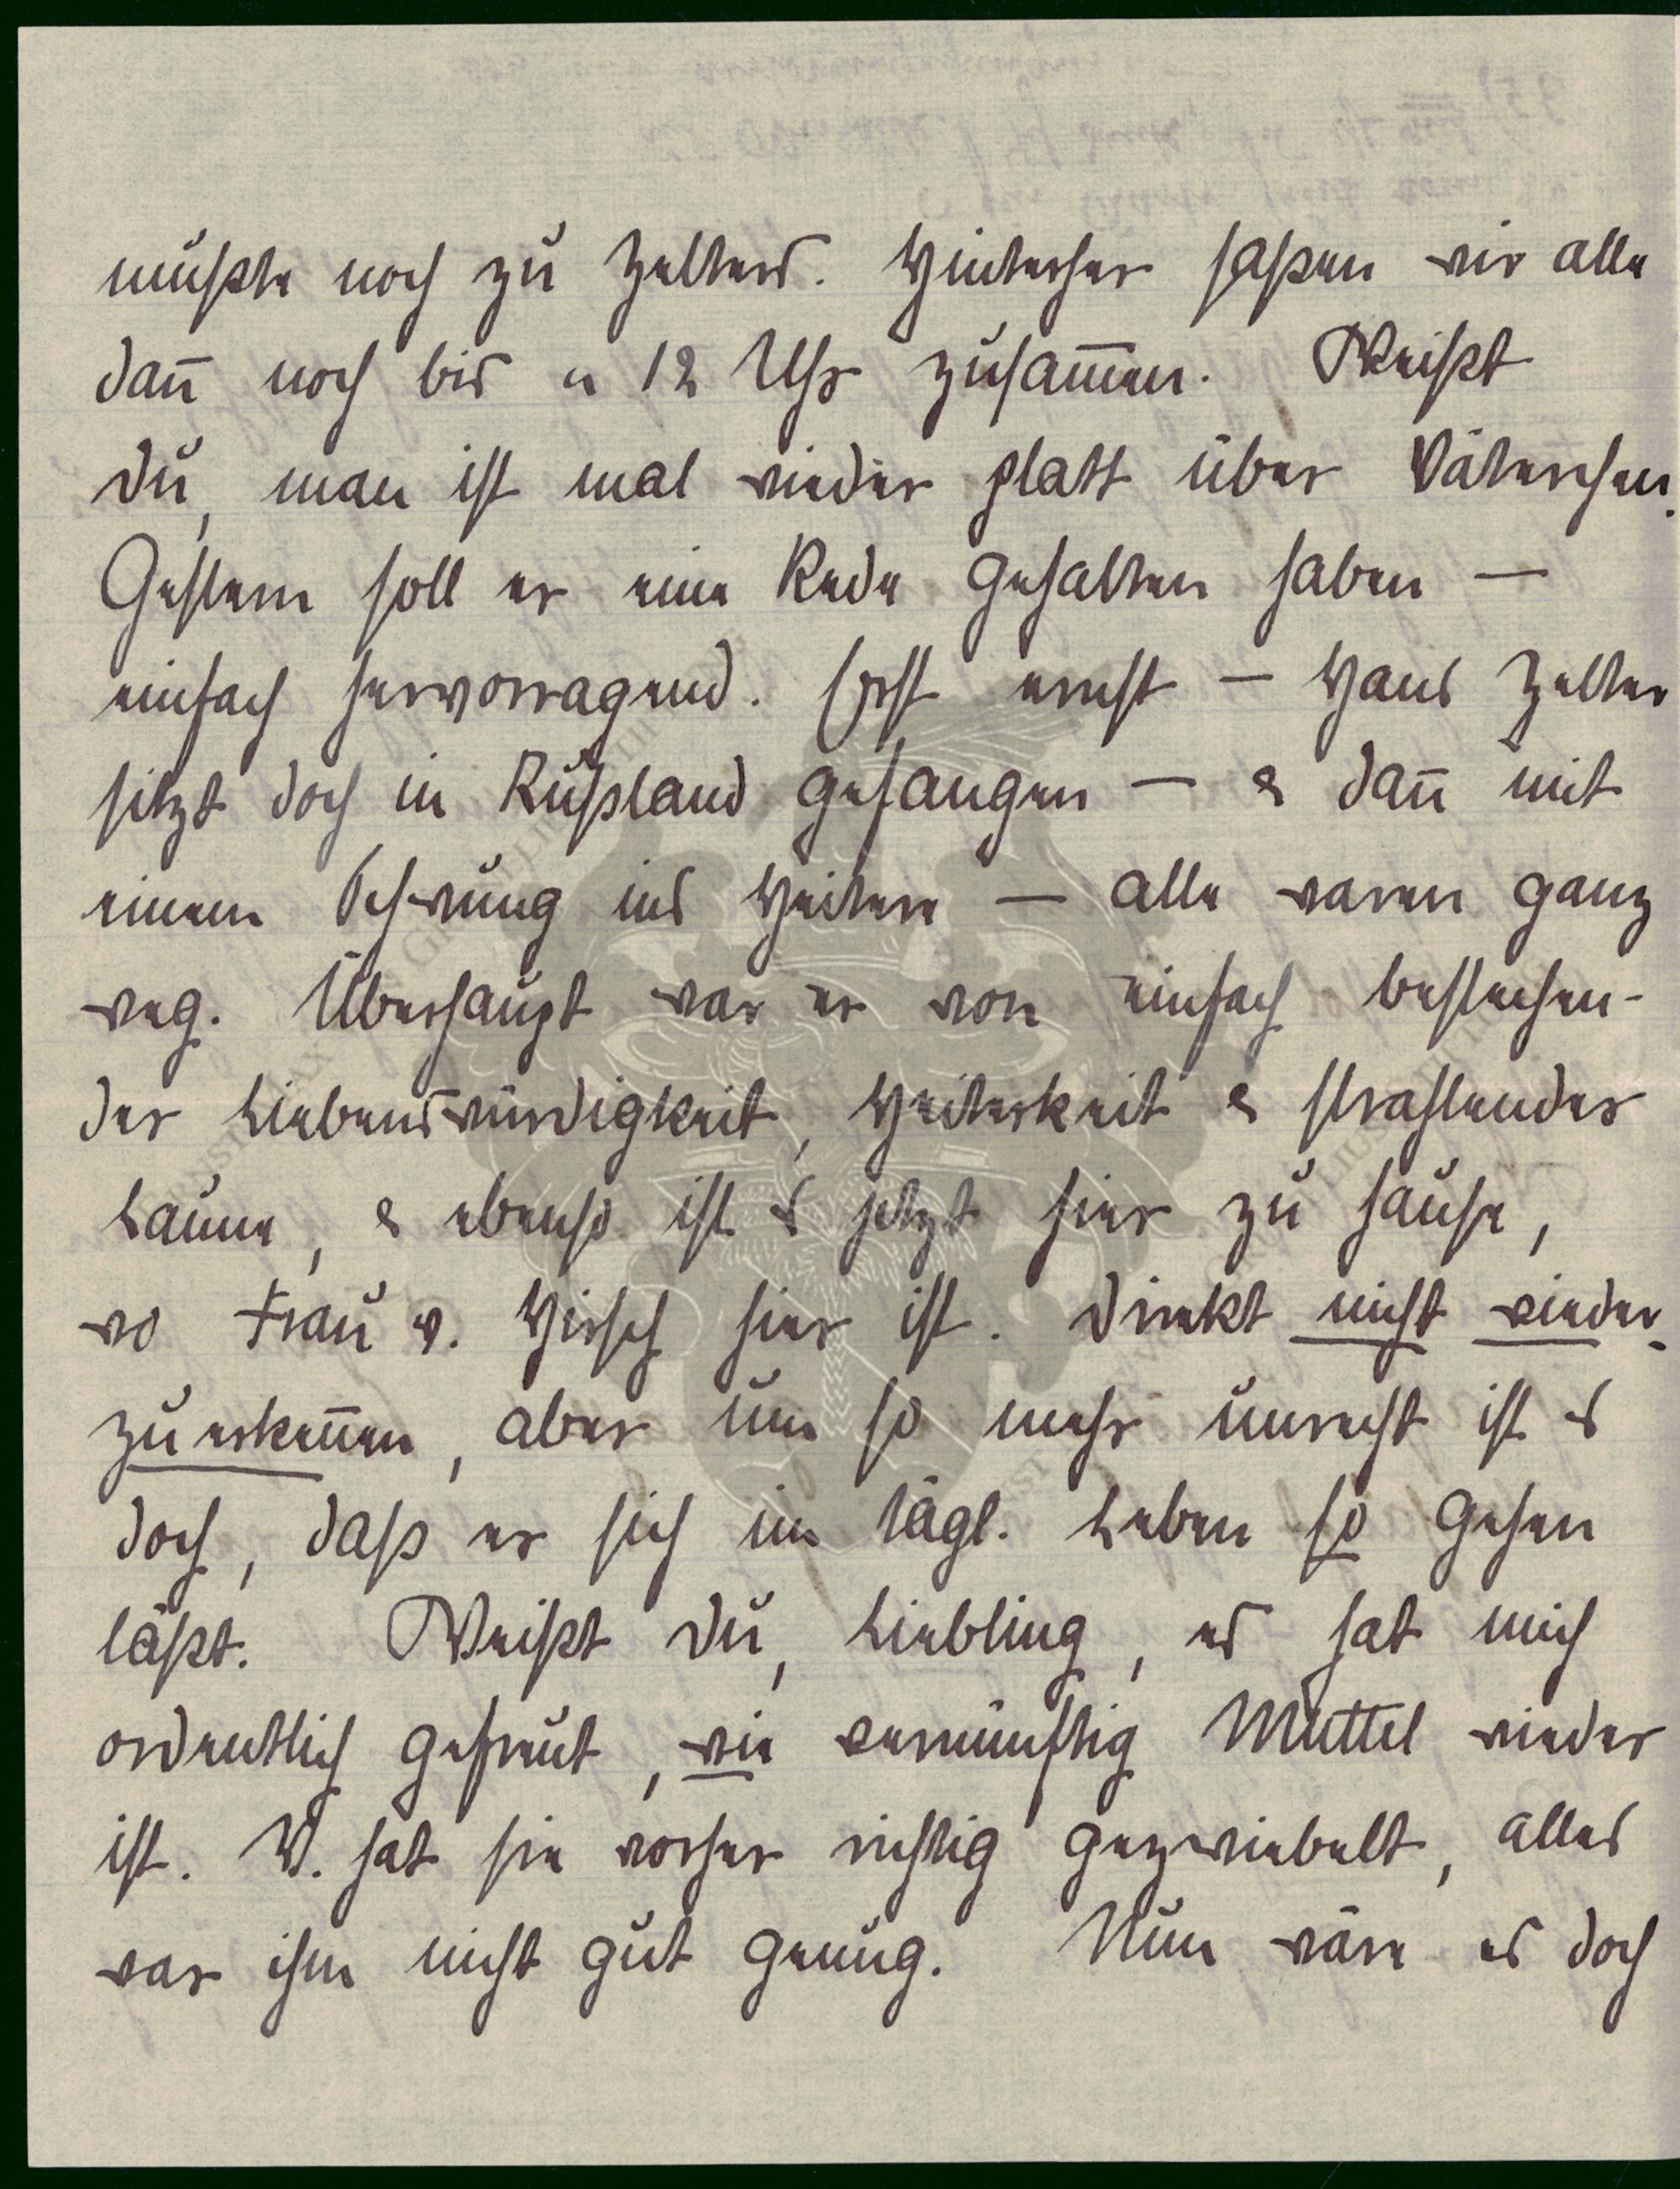 mußte noch zu Zelters. Hinterher saßen wir alle
dan̄ noch bis n 12 Uhr zusam̄en. Weißt
Du, man ist mal wieder platt über Väterchen.
Gestern soll er eine Rede gehalten haben —
einfach hervorragend. Erst ernst — Hans Zelter
sitzt doch in Rußland gefangen — & dan̄ mit
einem Schwung ins Heitere — alle waren ganz
weg. Überhaupt war er von einfach bestechen-
der Liebenswürdigkeit, Heiterkeit & strahlender
Laune, & ebenso ist es jetzt hier zu hause,
wo Frau v. Hirsch hier ist. Direkt nicht wieder-
zuerken̄en, aber um so mehr unrecht ist es
doch, daß er sich im tägl. Leben so gehen
läßt. Weißt Du, Liebling, es hat mich
ordentlich gefreut, wie vernünftig Muttel wieder
ist. W. hat sie vorher richtig gezwiebelt, alles
war ihm nicht gut genug. Nun wäre es doch